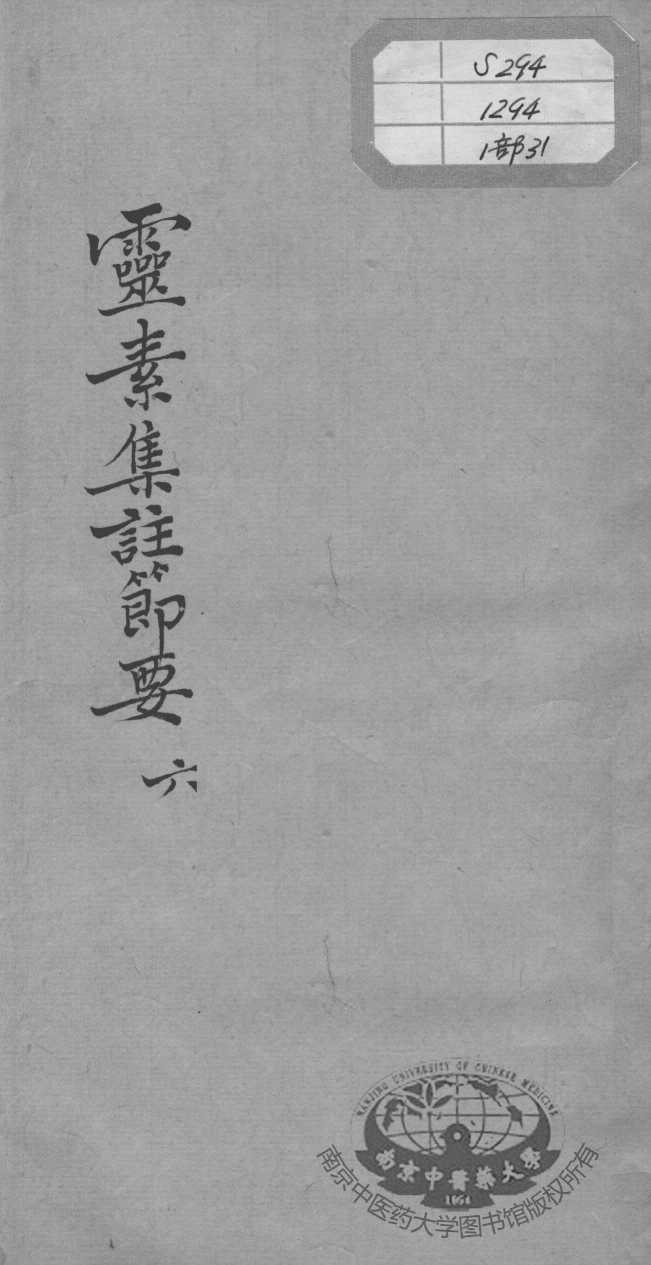 S294
1294
1部31
靈素集註節要 六
NANJING UNIVERSITY OF CHINESE MEDICINE
南京中醫藥大學
1954
南京中医药大学图书馆版权所有